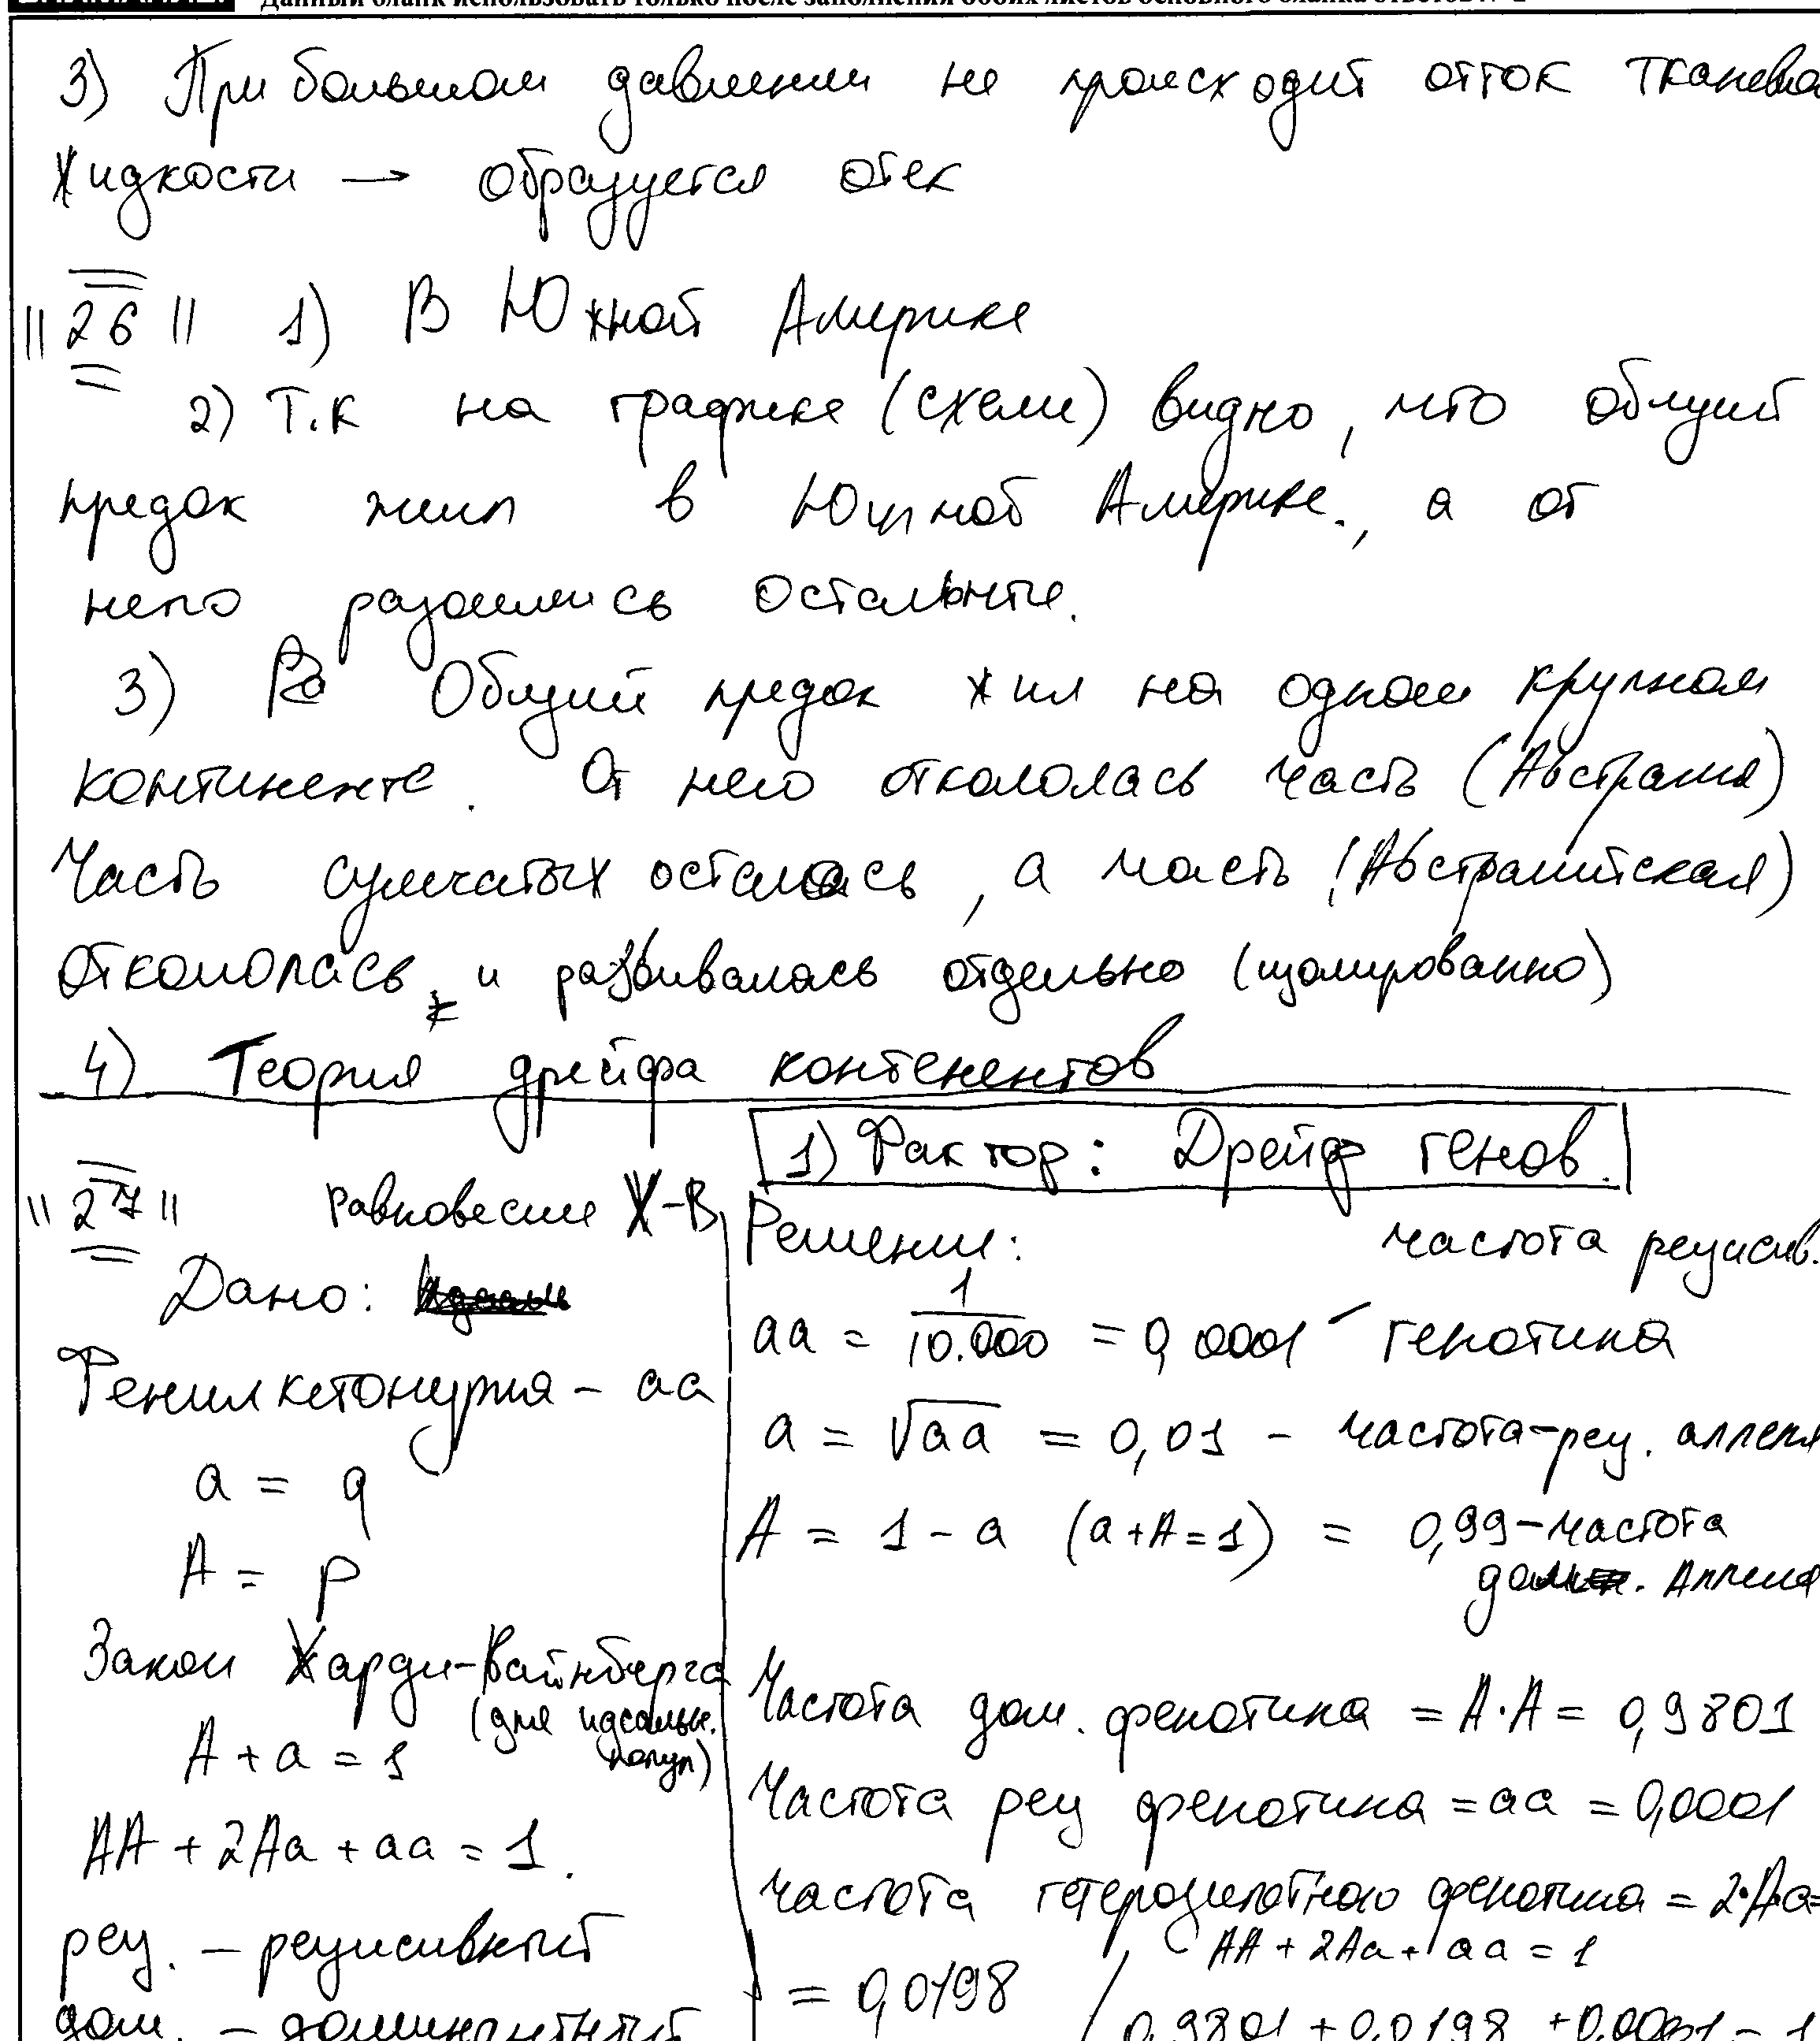 Данный бланк использовать только после заполнения обоих листов основного бланка ответов № 2
3) При большом давлении не происходит отток тканевой
жидкости → образуется отек
"26" 1) В Южной Америке
2) Т.к на графике (схеме) видно, что общий
предок жил в Южной Америке., а от
него разошлись остальные.
3) Общий предок жил на одном крупном
континенте. От него откололась часть (Австралия)
Часть сумчатых осталась, а часть (Австралийская)
откололась и развивалась отдельно (изолированно)
4) Теория дрейфа контенентов
1) Фактор: Дрейф генов.
"27" равновесие Х-В
Дано:
Фенилкетонурия - aa
a = q
A = p
Закон Харди-Вайнберга
(для идеальн. попул)
A + a = 1
AA + 2Aa + aa = 1.
рец. - рецисивный
дом. - доминантный
Решение: частота рецисив.
aa = 1/10.000 = 0,0001 - генотипа
a = √aa = 0,01 - частота-рец. аллеля
A = 1 - a (a+A=1) = 0,99 - частота
дом. Аллеля
Частота дом. фенотипа = A·A = 0,9801
Частота рец фенотипа = aa = 0,0001
частота гетерозиготного фенотипа = 2·A·a=
= 0,0198
AA + 2Aa + aa = 1
0,9801 + 0,0198 + 0,0001 = 1